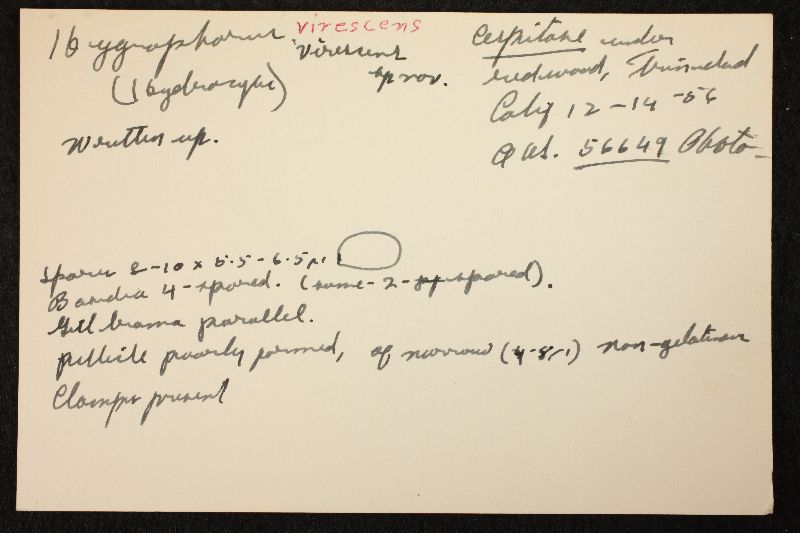 Hygrophorus virescens
virescens
sp nov.
(Hygrocybe)
Written up.
Cespitose under
redwood, Trinidad
Calif 12-14-56
AHS. 56649 Photo-
Spores 8-10 x 5.5-6.5 µ
Basidia 4-spored. (some-2-spored).
Gill trama parallel.
pellicle poorly formed, of narrow (4-8 µ) non-gelatinous
Clamps present